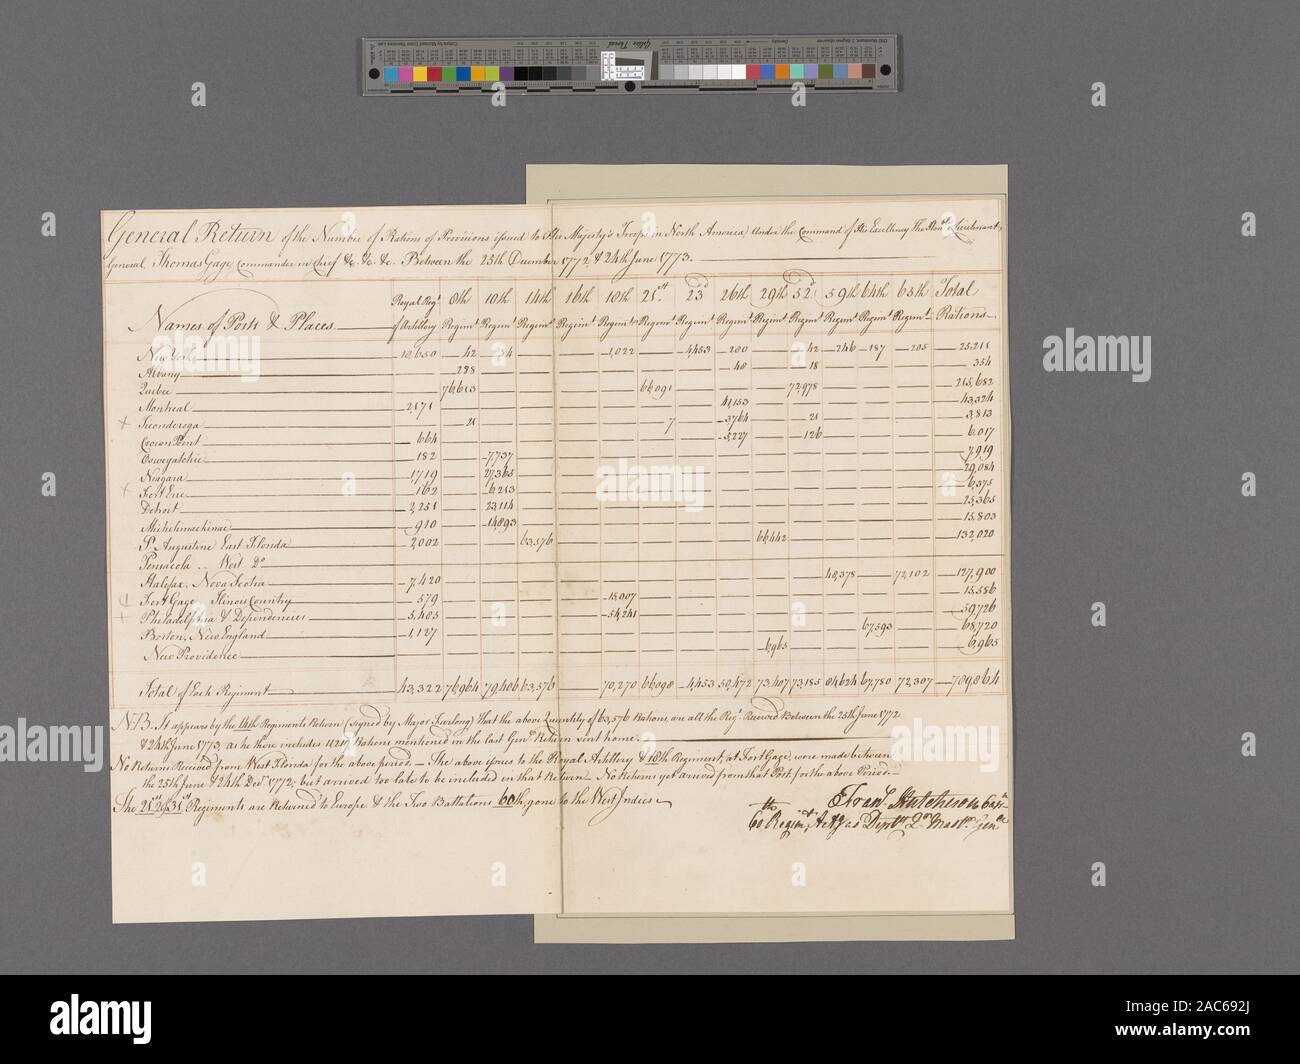 General Return of the Number of Rations of Provisions issued to His Majesty's Troops in North America, Under the Command of His Excellency The Honble Lieutenant
General, Thomas Gage, Commander in Chief &c. &c. &c. Between the 25th December 1772, & 24th June 1773.
Names of Posts & Places Royal Regt of Artillery 8th Regimt 10th Regimt 14th Regimt 16th Regimt 18th Regimt 21st Regimt 23d Regimt 26th Regimt 29th Regimt 52d Regimt 59th Regimt 64th Regimt 65th Regimt Total Rations
New York 10,650 42 1,022 4,453 200 42 246 187 205 25,218
Albany 288 48 18 354
Quebec 76,613 66,091 72,978 215,682
Montreal 2,171 41,153 43,324
+ Ticonderoga 21 7 3,764 21 3,813
Crown Point 664 5,227 126 6,017
Oswegatchie 182 7,737 7,919
Niagara 1,719 27,365 29,084
+ Fort Erie 162 6,213 6,375
Detroit 2,251 23,114 25,365
Michilimackinac 910 14,893 15,803
St Augustine East Florida 2,002 63,576 66,442 132,020
Pensacola .. West Do
Halifax, Nova Scotia 7,420 48,378 72,102 127,900
+ Fort Gage, Illinois Country 579 15,007 15,586
+ Philadelphia & Dependencies 5,485 54,241 59,726
Boston, New England 1,127 67,593 68,720
New Providence 6,965 6,965
Total of Each Regiment 43,322 76,964 79,406 63,576 70,270 66,098 4,453 50,472 73,407 73,185 48,624 67,780 72,307 789,864
N.B. It appears by the 14th Regiments Return (signed by Major Furlong) That the above Quantity of 63,576 Rations, are all the Regt Received Between the 25th June 1772
& 24th June 1773, as he there includes Rations mentioned in the last Genl Return sent home.
No Returns Received from West Florida for the above period. The above issues to the Royal Artillery & 18th Regiment, at Fort Gage, were made between
the 25th June & 24th Decr 1772, but arrived too late to be included in that Return. No Returns yet arrived from that Post for the above Period.
The 21st & 31st Regiments are Returned to Europe & the Two Battalions 60th, gone to the West Indies
Fran. Hutcheson Capt
60th Regimt Actg as Depty Qr Mastr Genl
a alamy
alamy
Image ID: 2AC692J
www.alamy.com